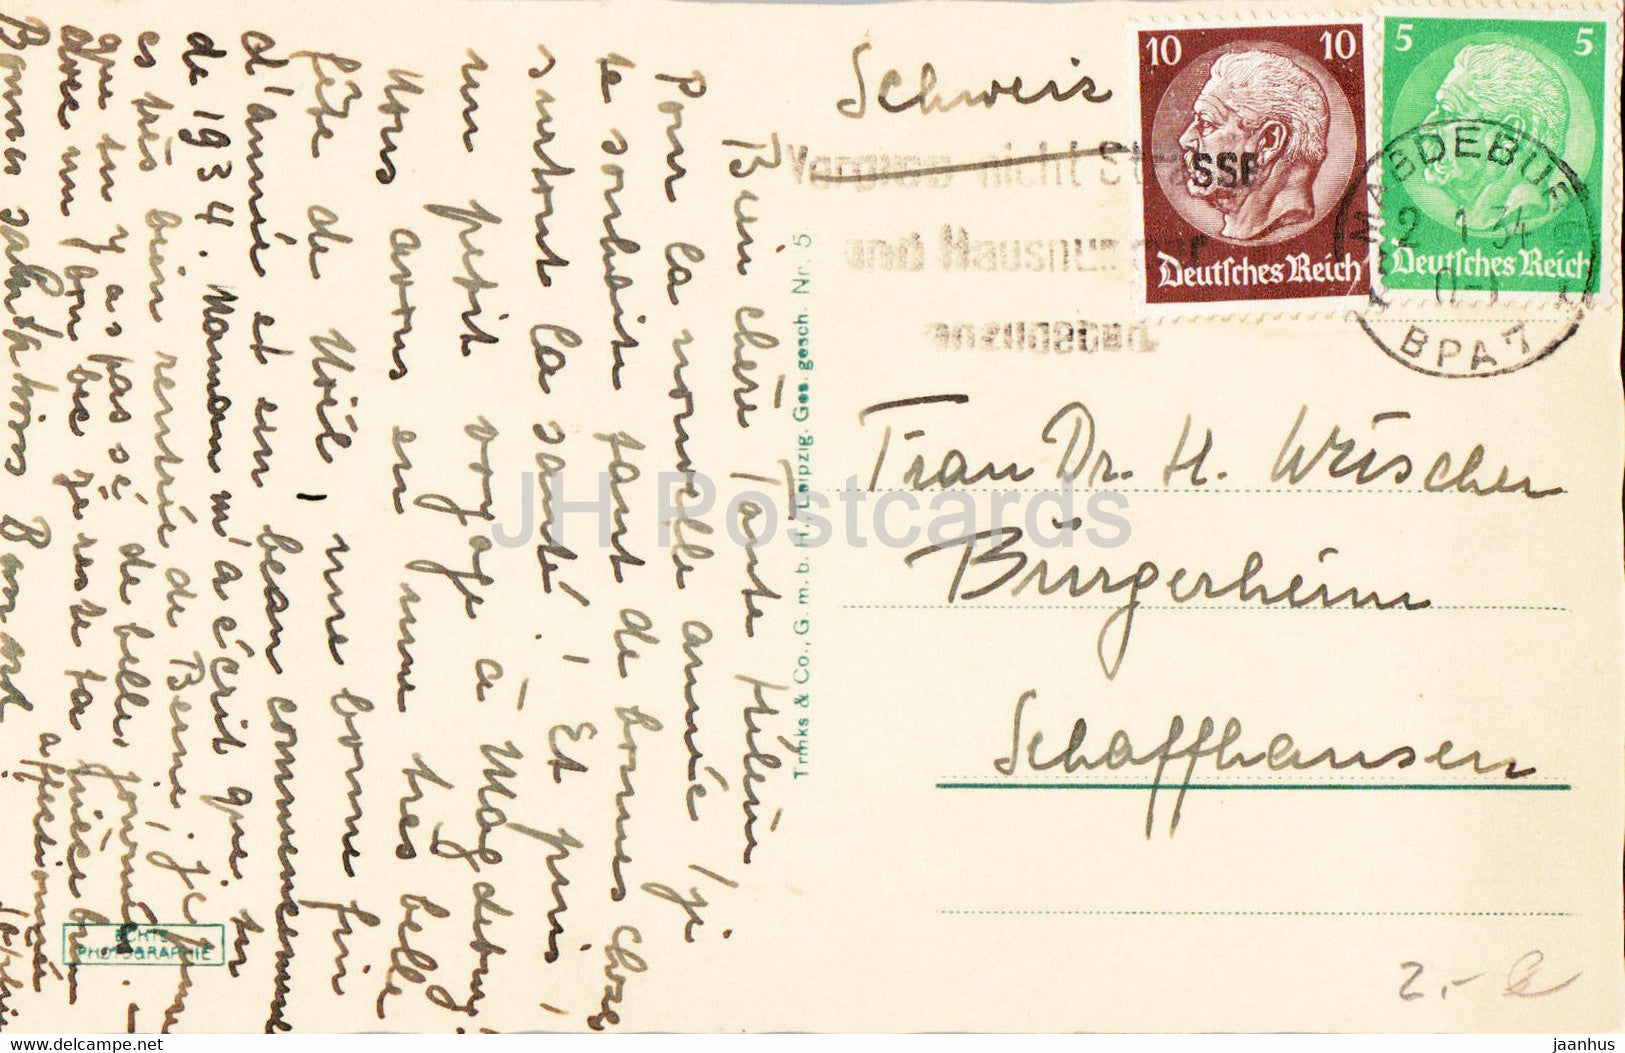 Schweiz
10 10
Deutsches Reich
5 5
Deutsches Reich
MAGDEBURG
2 1 34
BPA 7
Vergiss nicht Strasse
und Hausnummer
anzugeben
Frau Dr. H. Wüscher
Bürgerheim
Schaffhausen
Trinks & Co., G. m. b. H., Leipzig. Ges. gesch. Nr. 5
ECHTE
PHOTOGRAPHIE
Bien chère Tante Hélène
Pour la nouvelle année, je
te souhaite tant de bonnes choses
surtout la santé! Et puis
un petit voyage à Magdebourg
Nous avons eu une très belle
fête de Noël, une bonne fin
d'année et un beau commencement
de 1934. Maman m'a écrit que tu
es très bien rentrée de Berne, je
que tu y as passé de belles journées. -
avec un gros bec je reste ta nièce bien
affectionnée
Bonnes salutations
2.-
JH Postcards
delcampe.net
jaanhus